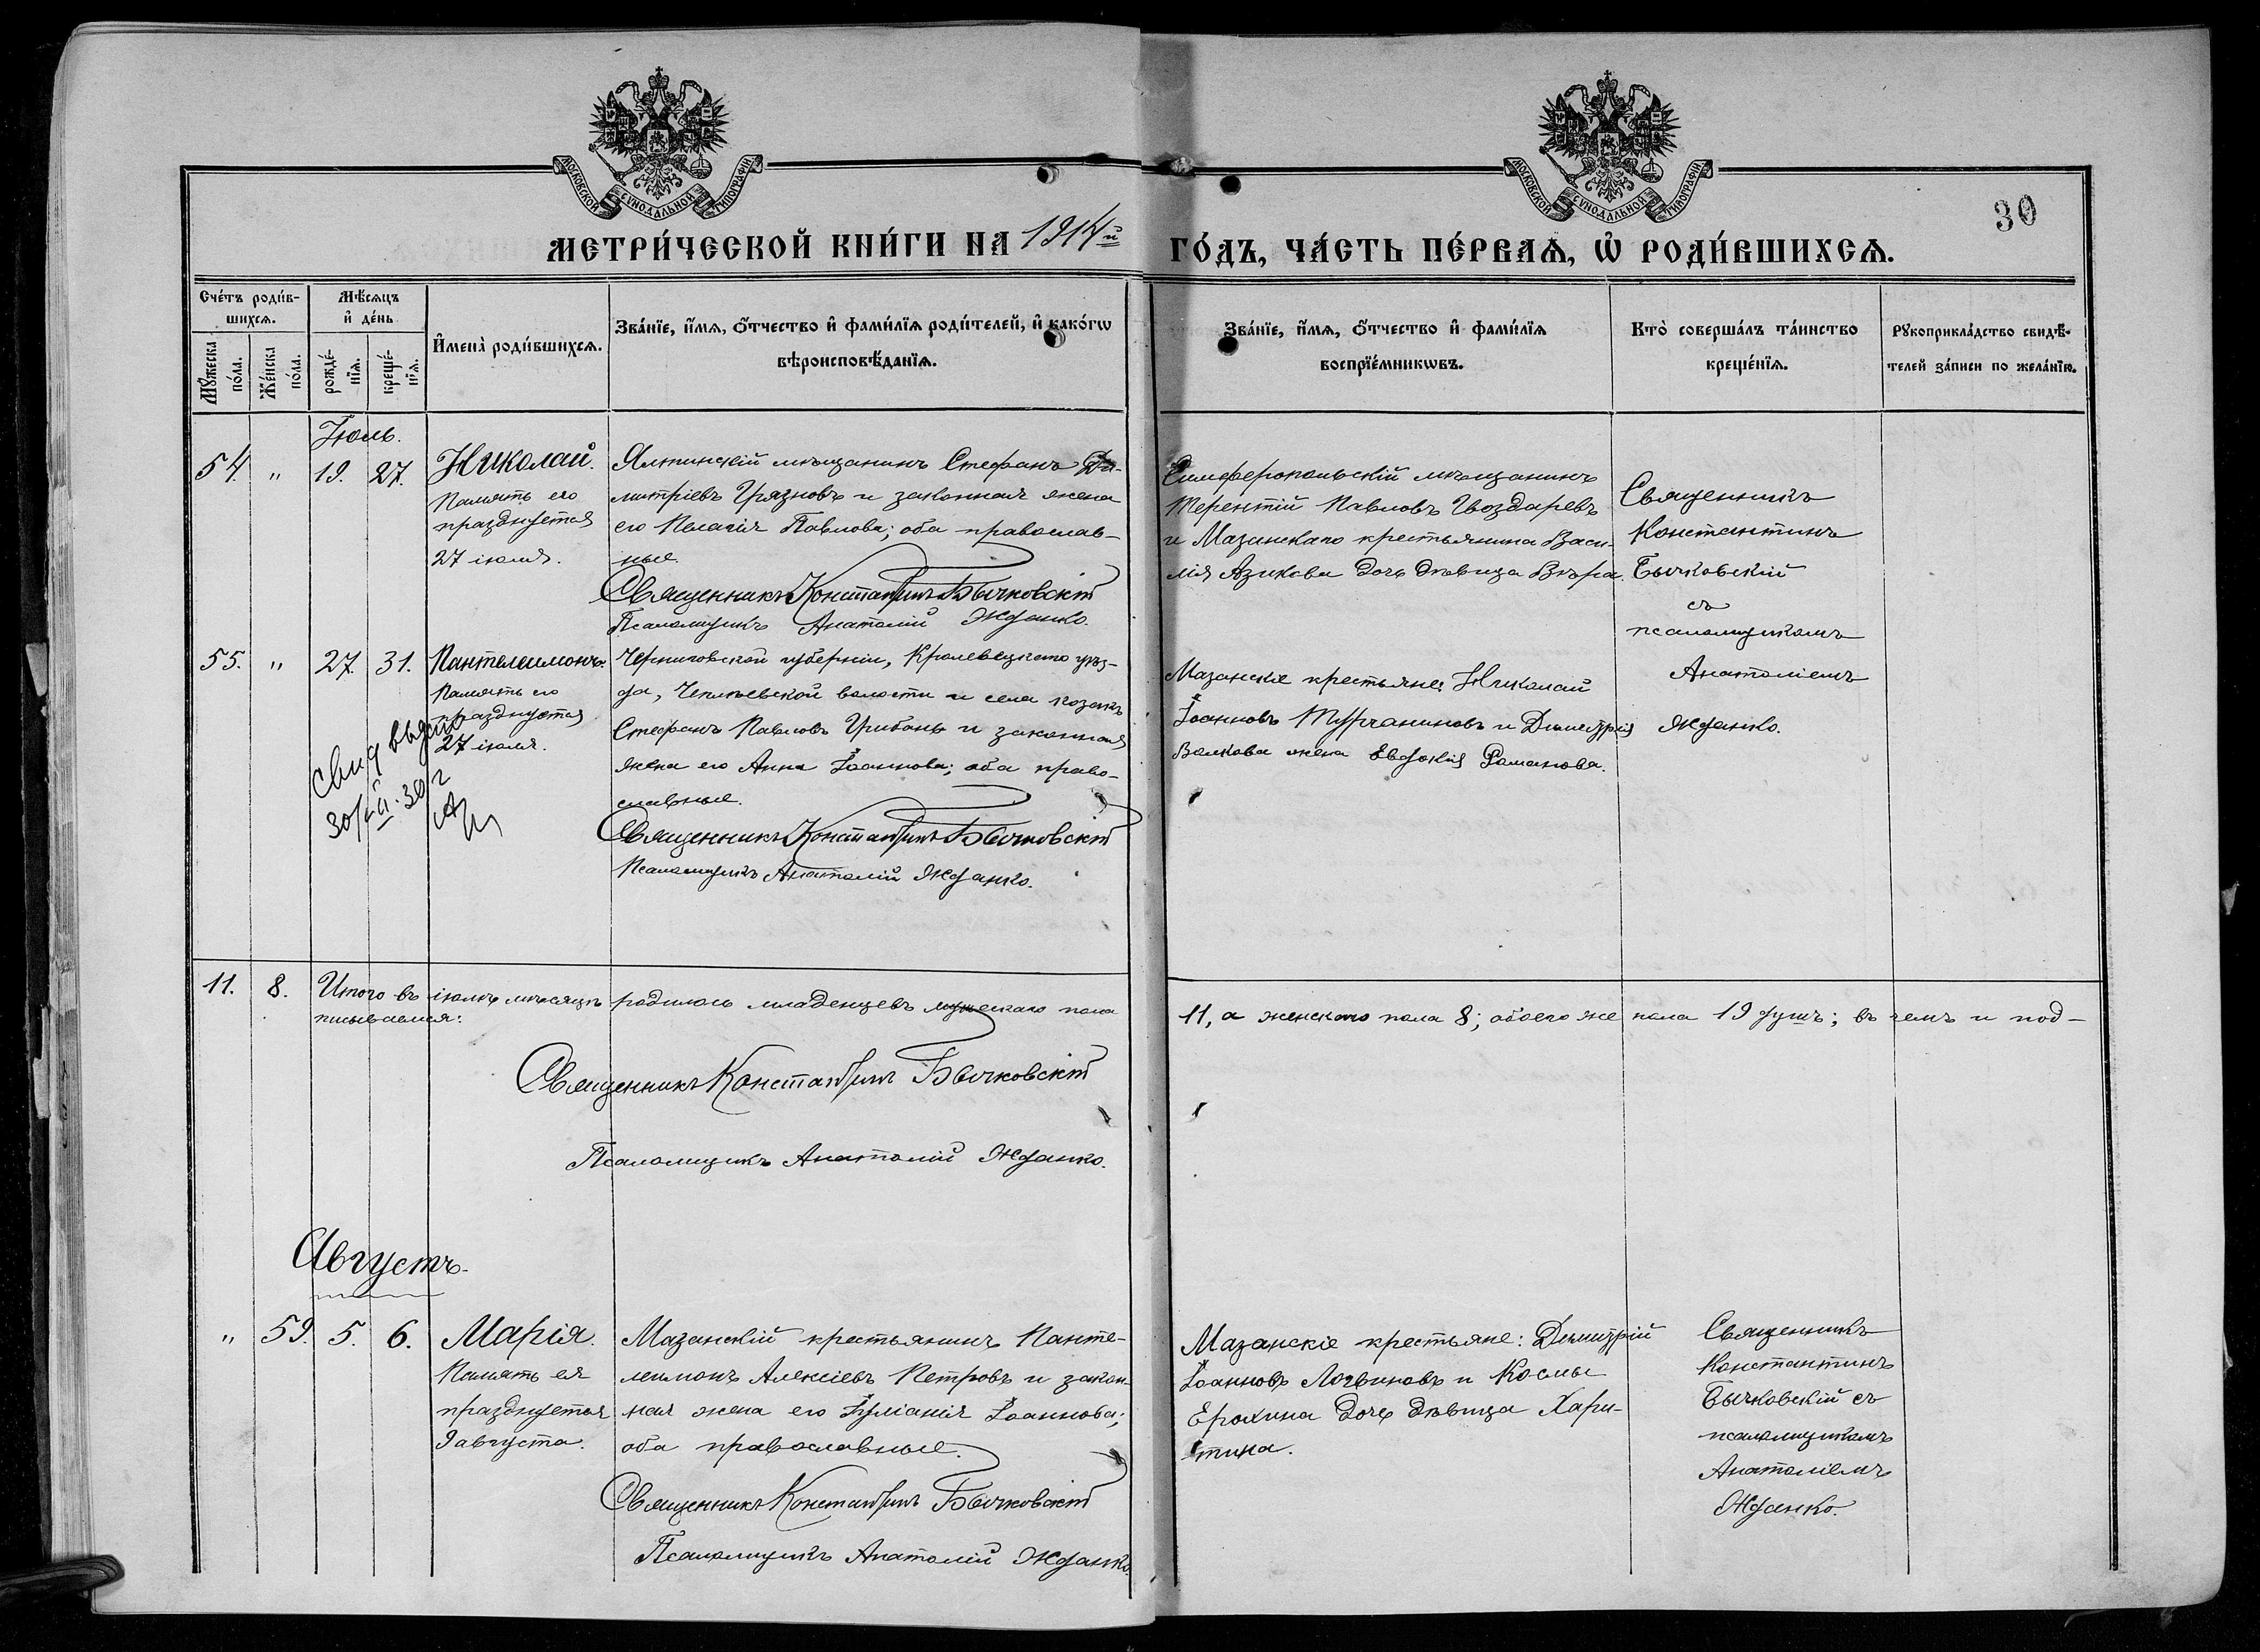 МОСКОВСКОЙ СѴНОДАЛЬНОЙ ТИПОГРАФІИ
МОСКОВСКОЙ СѴНОДАЛЬНОЙ ТИПОГРАФІИ
30
МЕТРИ́ЧЕСКОЙ КНИ́ГИ НА 1914й ГО́ДЪ, ЧА́СТЬ ПЕ́РВАѦ, Ѡ РОДИ́ВШИХСѦ.
Сче́тъ роди́в-
шихсѧ.
Мꙋ́жеска по́ла.
Же́нска по́ла.
Мѣ́сѧцъ
и҆ де́нь
рожде́-
нїѧ.
креще́-
нїѧ.
И҆мена̀ роди́вшихсѧ.
Зва́нїе, и҆́мѧ, ѻ҆́тчество и҆ фами́лїѧ роди́телей, и҆ како́гѡ
вѣроисповѣ́данїѧ.
Зва́нїе, и҆́мѧ, ѻ҆́тчество и҆ фами́лїѧ
воспрїе́мникѡвъ.
Кто̀ соверша́лъ та́инство
креще́нїѧ.
Рꙋкоприкла́дство свидѣ́-
телей за́писи по жела́нїю.
Іюль.
54. " 19. 27. Николай.
Память его
празднуется
27 іюля.
Ялтинскій мѣщанинъ Стефанъ Ди-
митріевъ Грязновъ и законная жена
его Пелагія Павлова; оба православ-
ные.
Священникъ Константинъ Бычковскій
Псаломщикъ Анатолій Жданко.
Симферопольскій мѣщанинъ
Терентій Павловъ Гвоздаревъ
и Мазанскаго крестьянина Васи-
лія Азикова дочь дѣвица Вѣра.
Священникъ
Константинъ
Бычковскій
съ
псаломщикомъ
Анатоліемъ
Жданко.
55. " 27. 31. Пантелеимонъ.
Память его
празднуется
27 іюля.
Свид выдано
30/VII.30 г
Черниговской губерніи, Кролевецкаго уѣз-
да, Чепліевской волости и села козакъ
Стефанъ Павловъ Грибанъ и законная
жена его Анна Іоаннова; оба право-
славные.
Священникъ Константинъ Бычковскій
Псаломщикъ Анатолій Жданко.
Мазанскіе крестьяне: Николай
Іоанновъ Турчаниновъ и Димитрія
Волкова жена Евдокія Романова.
11. 8. Итого въ іюлѣ мѣсяцѣ родилось младенцевъ мужескаго пола 11, а женскаго пола 8; обоего же пола 19 душъ; въ чемъ и под-
писываемся:
Священникъ Константинъ Бычковскій
Псаломщикъ Анатолій Жданко.
Августъ.
" 59. 5. 6. Марія.
Память ея
празднуется
9 августа.
Мазанскій крестьянинъ Панте-
леимонъ Алексіевъ Петровъ и закон-
ная жена его Іуліанія Іоаннова;
оба православные.
Священникъ Константинъ Бычковскій
Псаломщикъ Анатолій Жданко.
Мазанскіе крестьяне: Димитрій
Іоанновъ Логвиновъ и Космы
Ерохина дочь дѣвица Хари-
тина.
Священникъ
Константинъ
Бычковскій съ
псаломщикомъ
Анатоліемъ
Жданко.